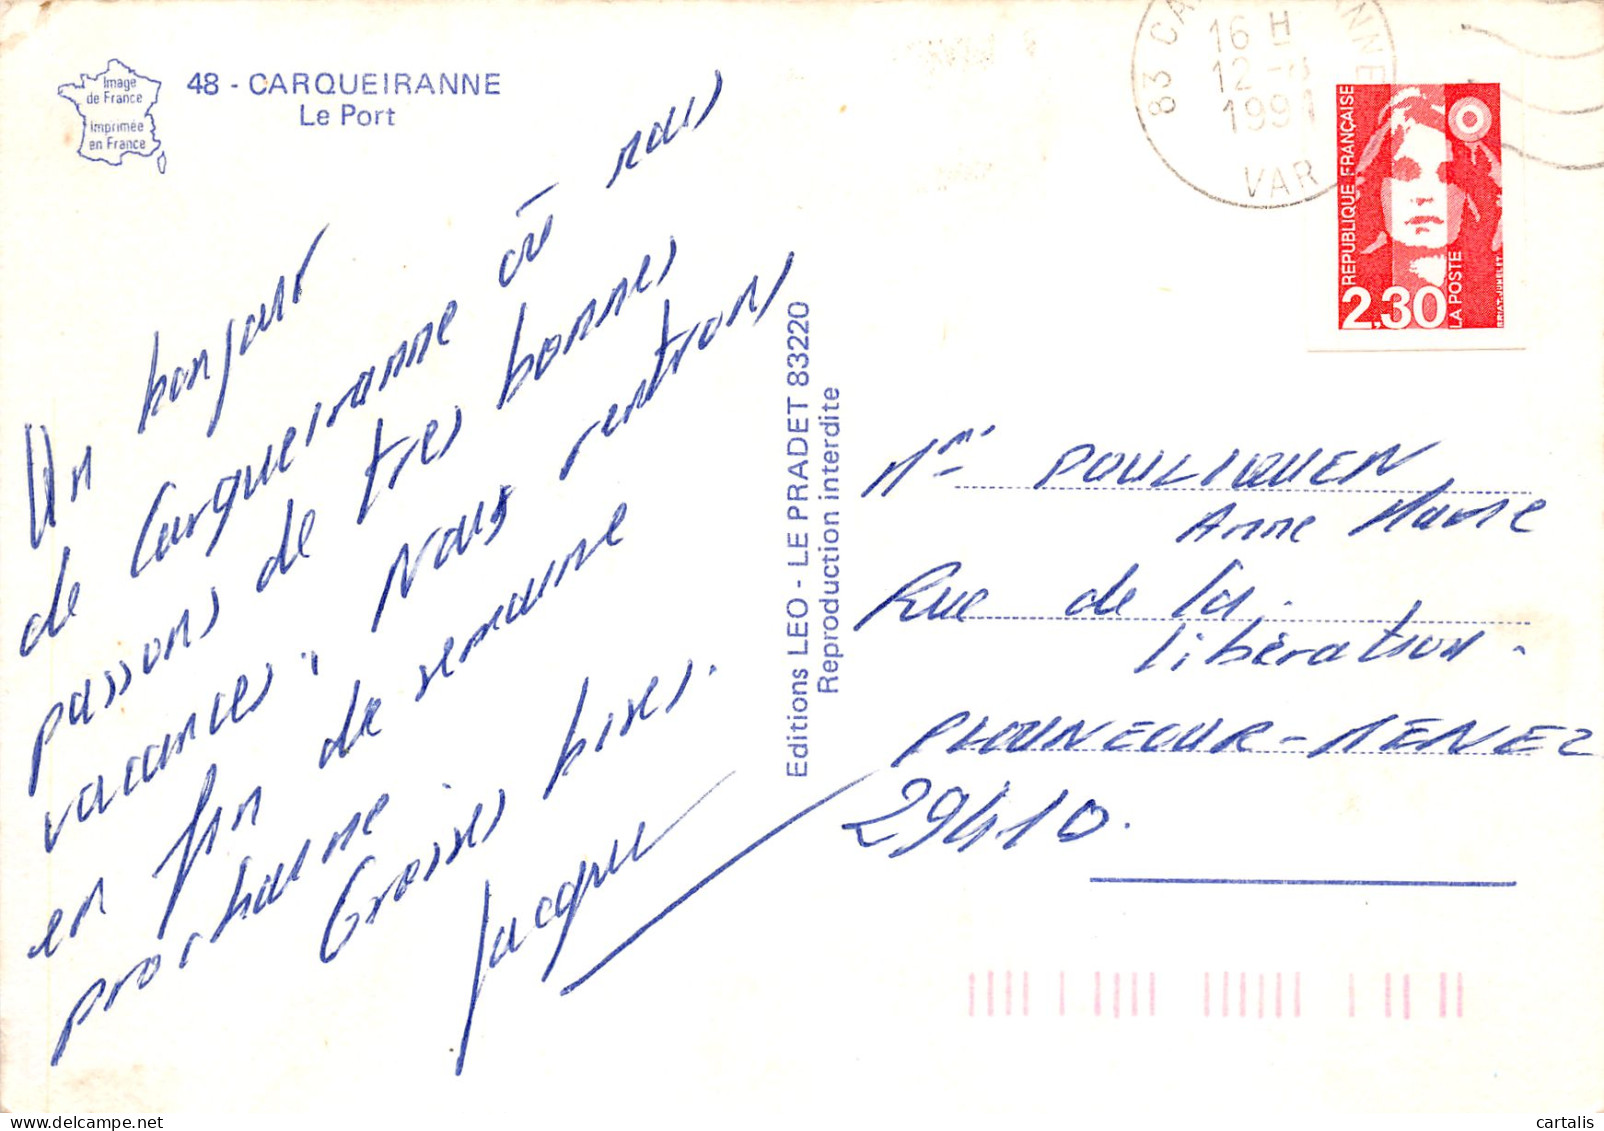 Image
de France
Imprimée
en France
48 - CARQUEIRANNE
Le Port
Un bonjour
de Carqueiranne où nous
passons de très bonnes
vacances. Nous rentrons
en fin de semaine
prochaine.
Grosses bises.
Editions LEO - LE PRADET 83220
Reproduction interdite
16 H
12 -8
1991
VAR
RÉPUBLIQUE FRANÇAISE
2,30
LA POSTE
POULIQUEN
Anne Marie
Rue de la
libération.
PLOUNEOUR-MENEZ
29410.
cartalis